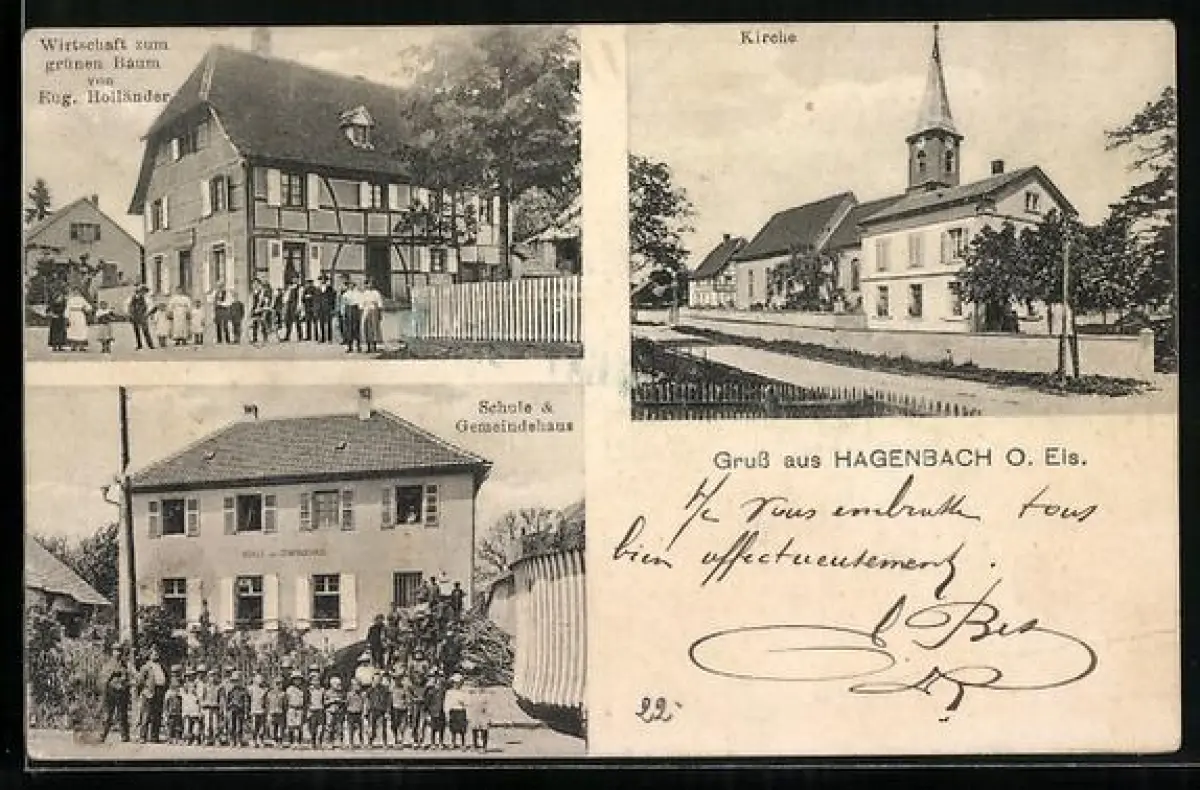 Wirtschaft zum
grünen Baum
von
Eug. Holländer
Kirche
Schule &
Gemeindehaus
Gruß aus HAGENBACH O. Els.
Je vous embrasse tous
bien affectueusement.
22